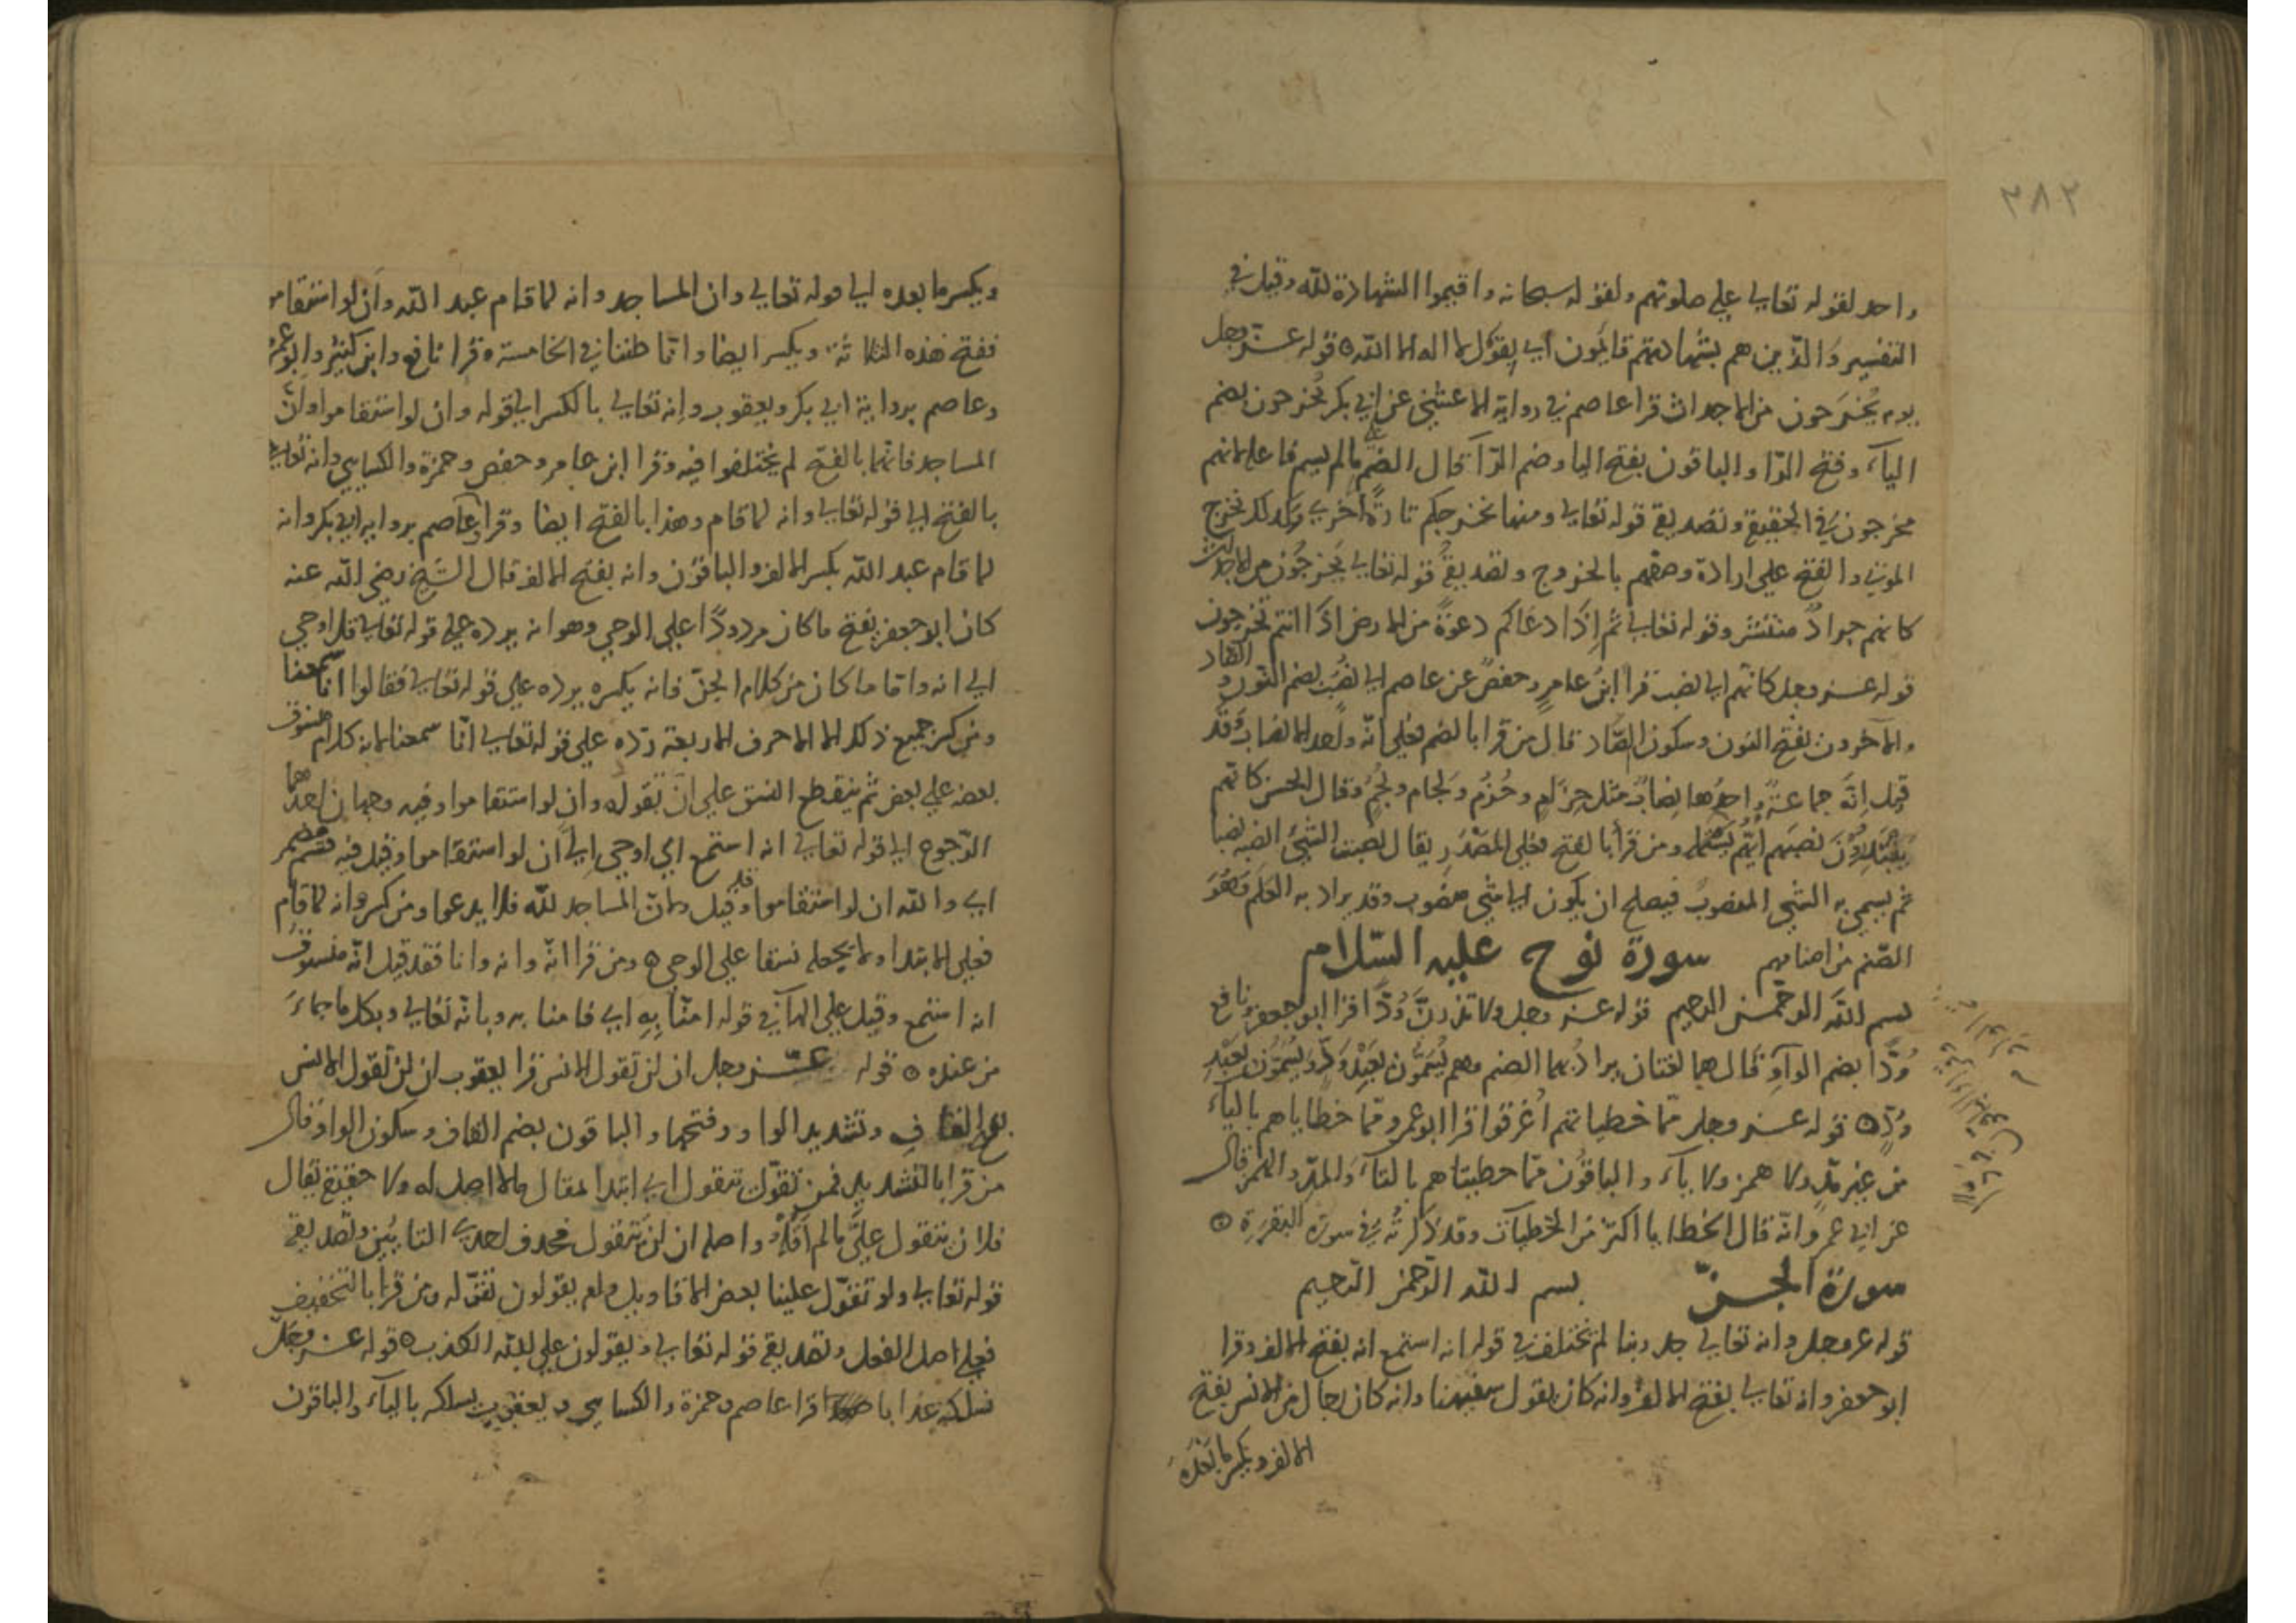 ٣٨٢
واحد لقوله تعالى على صلوتهم ولقوله سبحانه واقيموا الشهادة لله وقيل في
التفسير والذين هم بشهادتهم قائمون اي يقول لا اله الا الله ۝ قوله عز وجل
يوم يخرجون من الاجداث قرا عاصم في رواية الاعشى عن ابي بكر يُخرجون بضم
الياء وفتح الرا والباقون بفتح اليا وضم الرا قال الضم ما لم يسم فاعله لانهم
مخرجون في الحقيقة وتصديقه قوله تعالى ومنها نخرجكم تارة اخرى وكذلك نخرج
الموتى والفتح على ارادة وصفهم بالخروج وتصديقه قوله تعالى يخرجون من الاجداث
كانهم جراد منتشر وقوله تعالى ثم اذا دعاكم دعوة من الارض اذا انتم تخرجون
قوله عز وجل كانهم الى نصب قرا ابن عامر وحفص عن عاصم الى نُصُب بضم النون والصاد
والآخرون بفتح النون وسكون الصاد قال من قرا بالضم فعلى انه واحد الانصاب وقد
قيل انه جماعة واحدها نصاب مثل حزام وحزم ولجام ولجم وقال الحسن كانهم
يبتدرون نصبهم ايهم يستلمه ومن قرا بالفتح فعلى المصدر يقال نصبت الشيئ انصبه نصبا
ثم يسمى به الشيئ المنصوب فيصلح ان يكون الى شيئ منصوب وقد يراد به العلم وهو
الصنم من اصنامهم سورة نوح عليه السلام
بسم الله الرحمن الرحيم قوله عز وجل ولا تذرن ودا قرا ابو جعفر ونافع
وُدّا بضم الواو قال هما لغتان يراد بهما الصنم وهم يسمون بعبد ود ويسمون بعبد
وُدّ ۝ قوله عز وجل مما خطيأتهم اغرقوا قرا ابو عمرو مما خطاياهم بالياء
من غير مد ولا همز ولا ياء والباقون مما خطيئاتهم بالتاء والمد والهمز قال
عن ابي عمرو انه قال الخطايا اكثر من الخطيات وقد ذكرته في سورة البقرة ۝
سورة الجن بسم الله الرحمن الرحيم
قوله عز وجل وانه تعالى جد ربنا لم يختلف في قوله انه استمع انه بفتح الالف وقرا
ابو جعفر وانه تعالى بفتح الالف وانه كان يقول سفيهنا وانه كان رجال من الانس بفتح
الالف ويكسر ما بعده
ويكسر ما بعده الى قوله تعالى وان المساجد وانه لما قام عبد الله وان لو استقاموا
ففتح هذه الثلاثة ويكسر ايضا وانا ظننا في الخامسة وقرا نافع وابن كثير وابو عمرو
وعاصم برواية ابي بكر ويعقوب وانه تعالى بالكسر الى قوله وان لو استقاموا وان
المساجد فانهما بالفتح لم يختلفوا فيه وقرا ابن عامر وحفص وحمزة والكسايي وانه تعالى
بالفتح الى قوله تعالى وانه لما قام وهذا بالفتح ايضا وقرا عاصم برواية ابي بكر وانه
لما قام عبد الله بكسر الالف والباقون وانه بفتح الالف قال الشيخ رضي الله عنه
كان ابو جعفر يفتح ما كان مردودا على الوحي وهو انه يرده على قوله تعالى قل اوحي
الي انه واما ما كان من كلام الجن فانه يكسره يرده على قوله تعالى فقالوا انا سمعنا
ومن كسر جميع ذلك الا الاحرف الاربعة رده على قوله تعالى انا سمعنا لانه كلام منسوق
بعضه على بعض ثم ينقطع النسق على ان بقوله وان لو استقاموا وفيه وجهان احدهما
الرجوع الى قوله تعالى انه استمع اي اوحي الي ان لو استقاموا وقيل فيه قسم مضمر
اي والله ان لو استقاموا وقيل ولان المساجد لله فلا يدعوا ومن كسر وانه لما قام
فعلى الابتدا ولا يجعله نسقا على الوحي ۝ ومن قرا انه وانه وانا فقد قيل انه منسوق
انه استمع وقيل على الهآ في قوله امنا به اي فامنا به وبانه تعالى وبكل ما جاء
من عنده ۝ قوله عز وجل ان لن تقول الانس قرا يعقوب ان لن تقول الانس
بفتح القاف وتشديد الواو وفتحها والباقون بضم القاف وسكون الواو قال
من قرا بالتشديد فمن تقول يتقول اي ابتدا مقال ما لا اصل له ولا حقيقة يقال
فلان يتقول علي ما لم اقله واصله ان لن تتقول فحذف احدى التايين وتصديقه
قوله تعالى ولو تقول علينا بعض الاقاويل وام يقولون تقوله ومن قرا بالتخفيف
فعلى اصل الفعل وتصديقه قوله تعالى ويقولون على الله الكذب ۝ قوله عز وجل
نسلكه عذابا صعدا قرا عاصم وحمزة والكسايي ويعقوب يسلكه بالياء والباقون